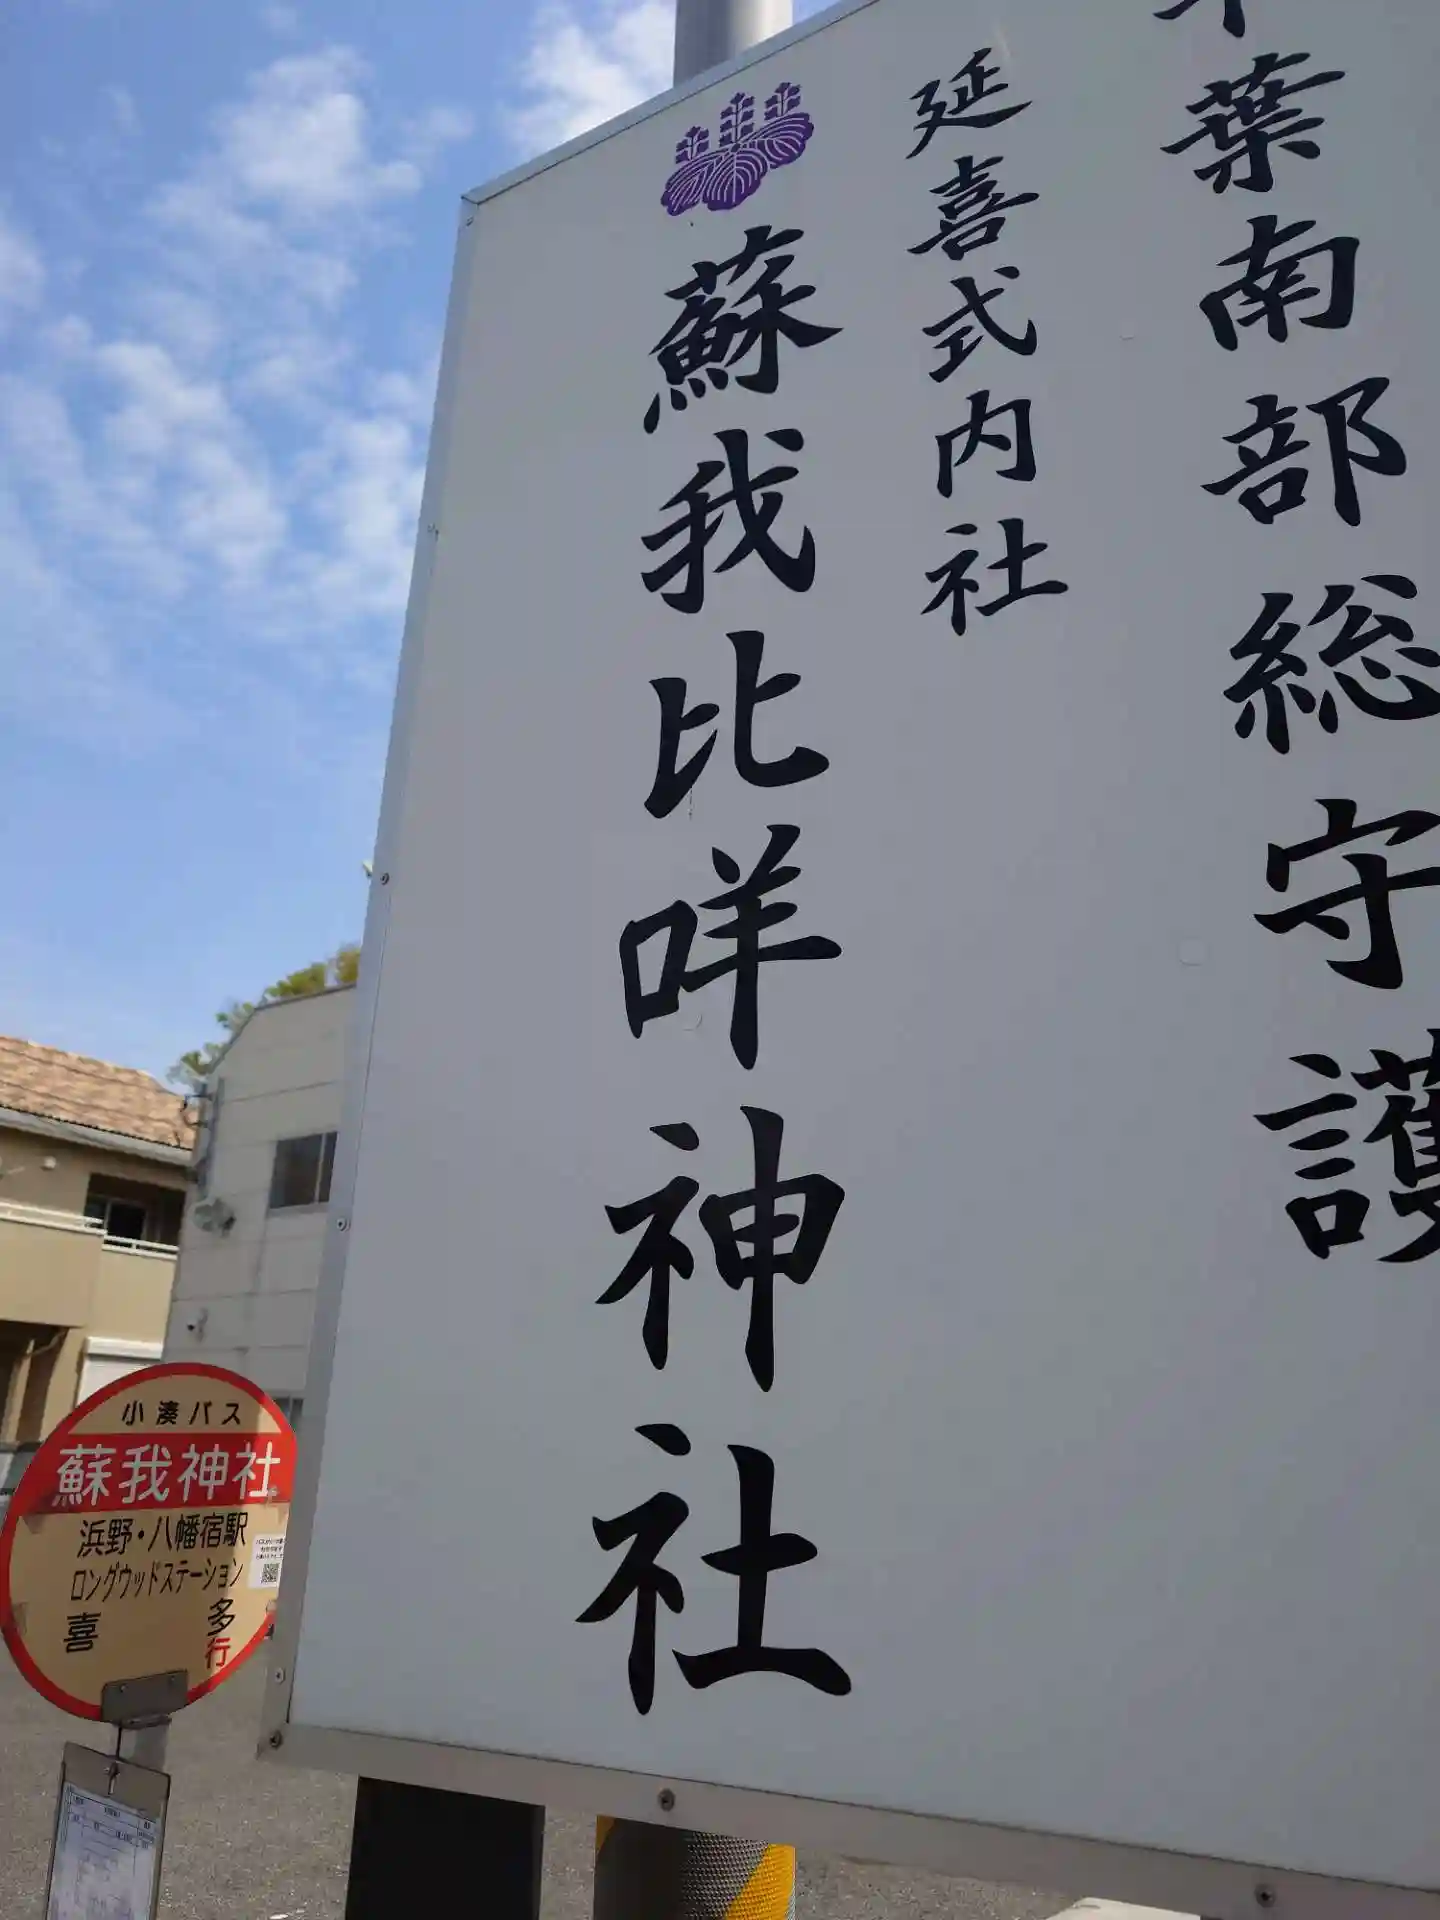 千葉南部総守護
延喜式内社
蘇我比咩神社
小湊バス
蘇我神社
浜野・八幡宿駅
ロングウッドステーション
喜多
行